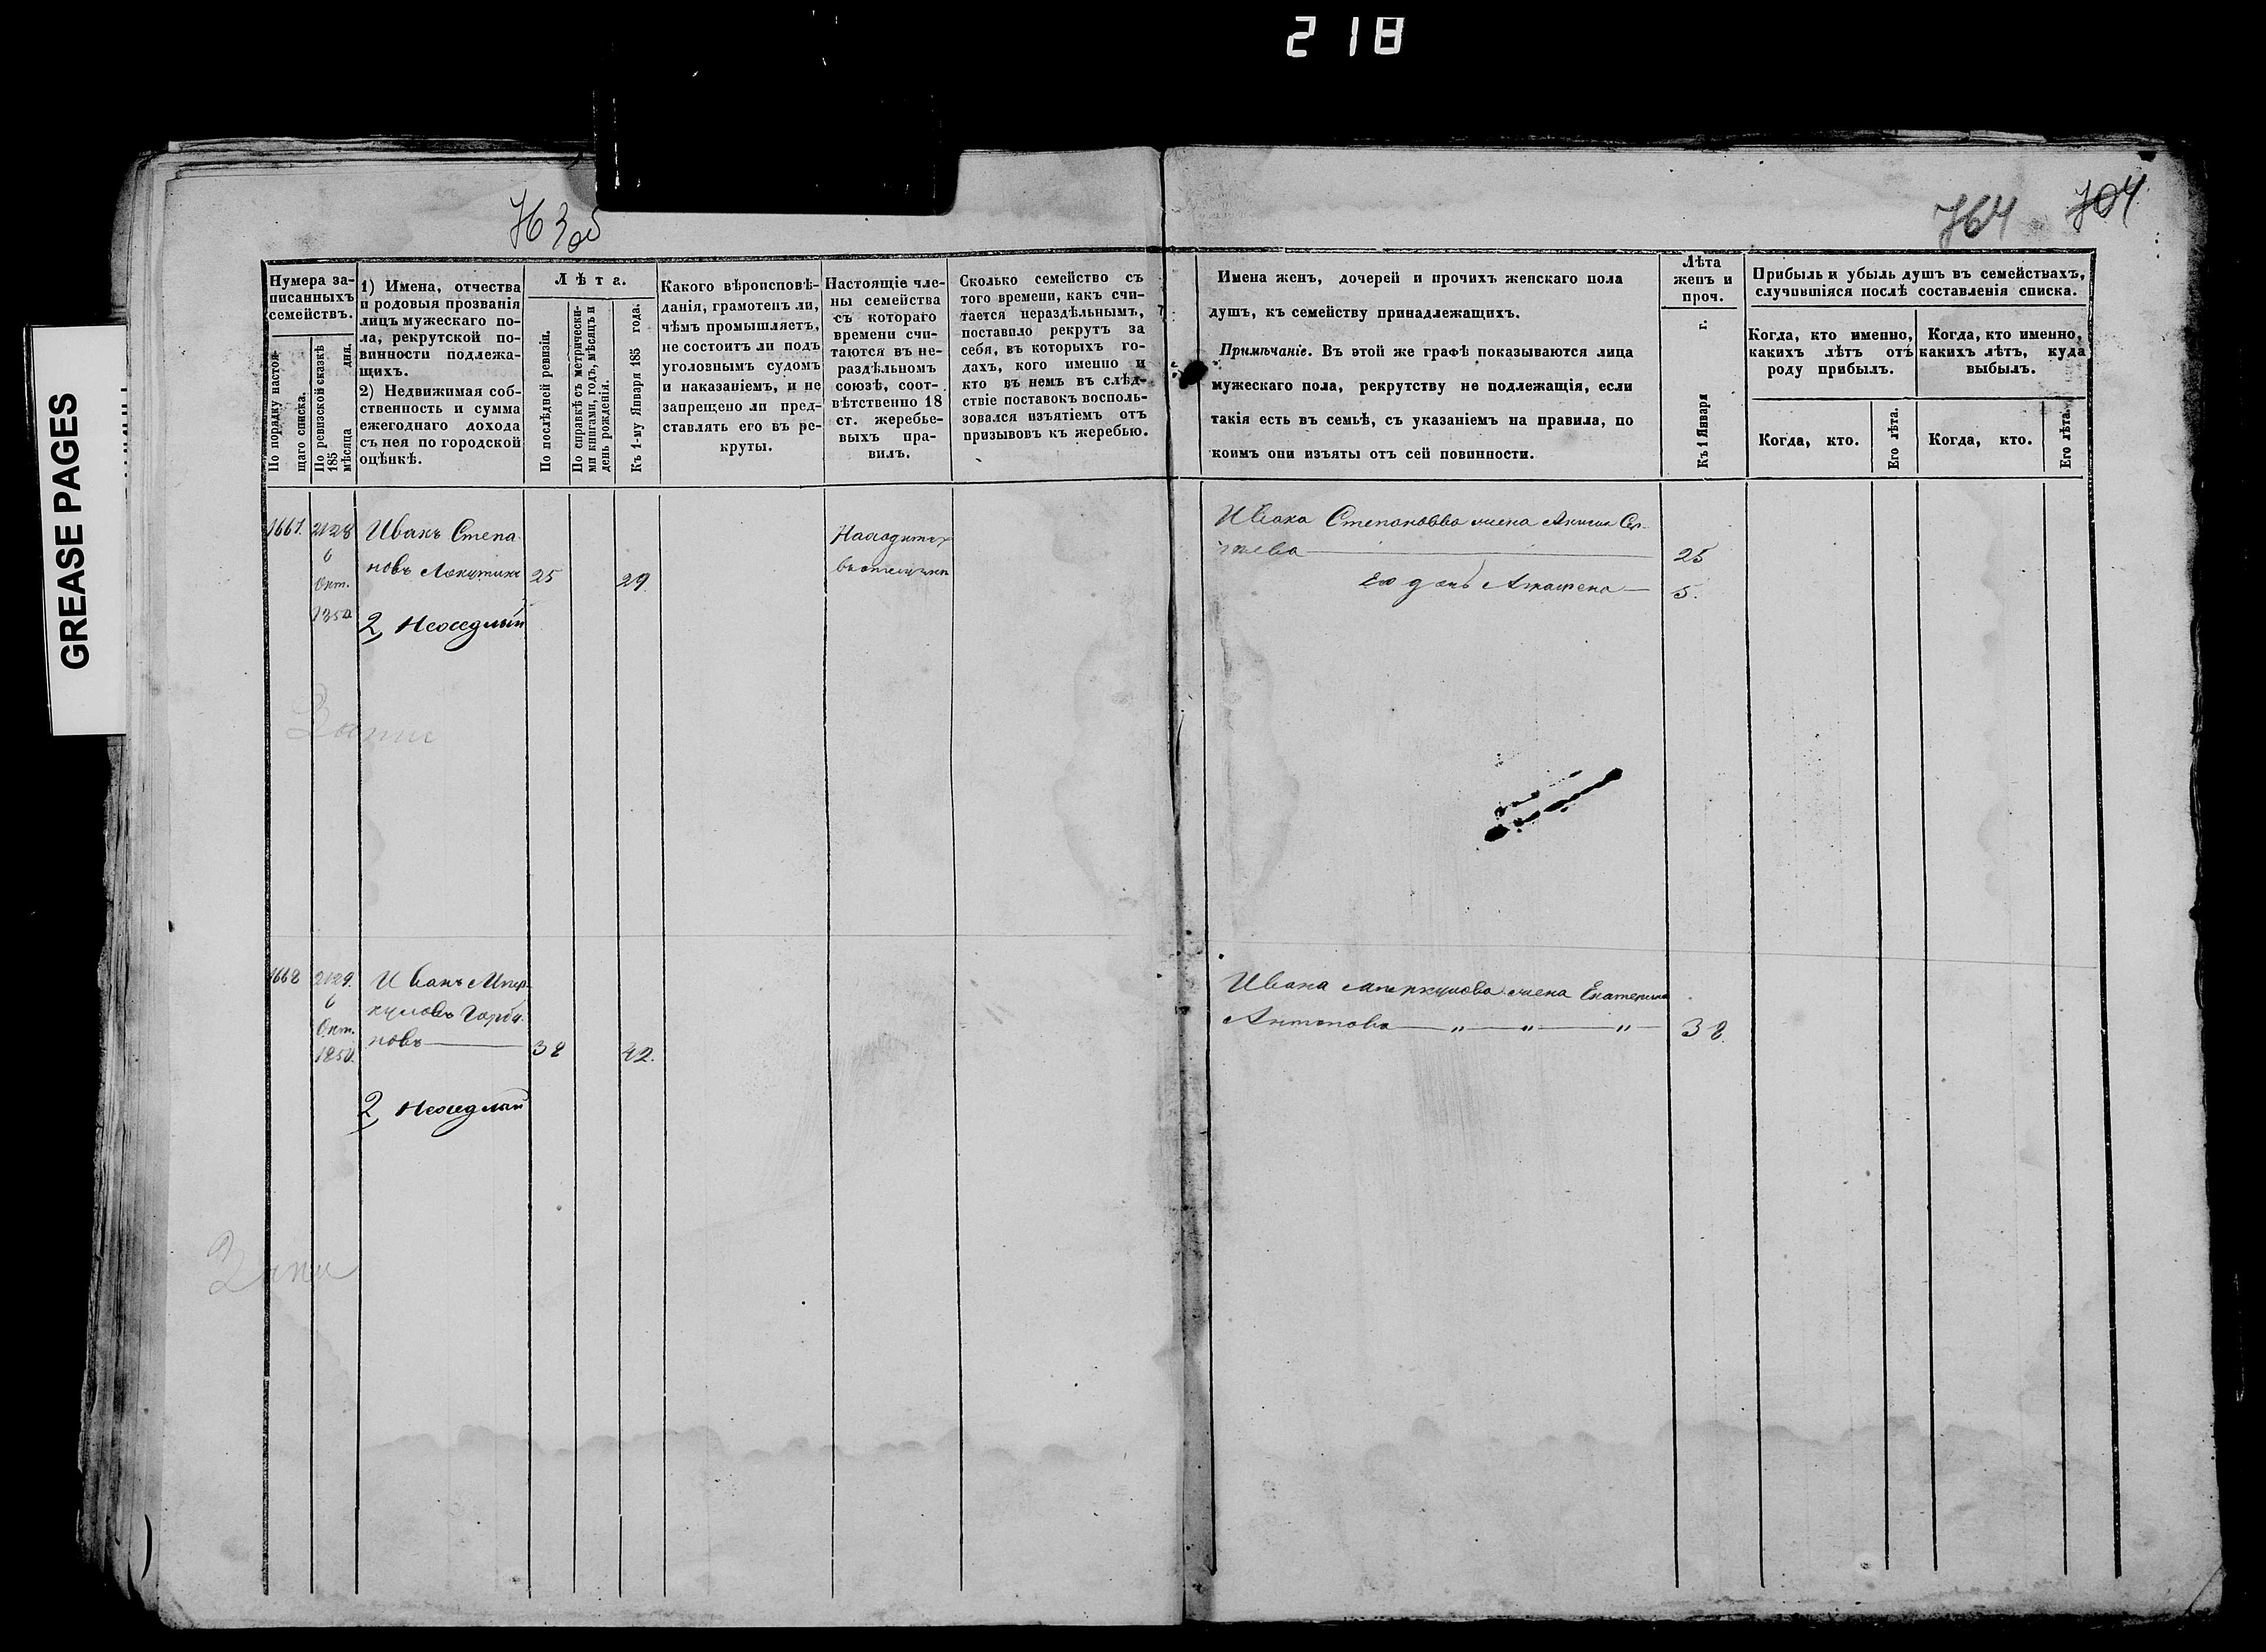 218
GREASE PAGES
763об
764 704
Нумера за-
писанныхъ
семействъ.
По порядку настоя-
щаго списка.
По ревизской сказкѣ
185 дня.
мѣсяца
1) Имена, отчества
и родовыя прозванія
лицъ мужескаго по-
ла, рекрутской по-
винности подлежа-
щихъ.
2) Недвижимая соб-
ственность и сумма
ежегоднаго дохода
съ нея по городской
оцѣнкѣ.
Лѣта.
По послѣдней ревизіи.
По справкѣ съ метрически-
ми книгами, годъ, мѣсяцъ и
день рожденія.
Къ 1-му Января 185 года.
Какого вѣроисповѣ-
данія, грамотенъ ли,
чѣмъ промышляетъ,
не состоитъ ли подъ
уголовнымъ судомъ
и наказаніемъ, и не
запрещено ли пред-
ставлять его въ ре-
круты.
Настоящіе чле-
ны семейства
съ котораго
времени счи-
таются въ не-
раздѣльномъ
союзѣ, соот-
вѣтственно 18
ст. жеребье-
выхъ пра-
вилъ.
Сколько семейство съ
того времени, какъ счи-
тается нераздѣльнымъ,
поставило рекрутъ за
себя, въ которыхъ го-
дахъ, кого именно и
кто въ немъ въ слѣд-
ствіе поставокъ восполь-
зовался изъятіемъ отъ
призывовъ къ жеребью.
Имена женъ, дочерей и прочихъ женскаго пола
душъ, къ семейству принадлежащихъ.
Примѣчаніе. Въ этой же графѣ показываются лица
мужескаго пола, рекрутству не подлежащія, если
такія есть въ семьѣ, съ указаніемъ на правила, по
коимъ они изъяты отъ сей повинности.
Лѣта
женъ и
проч.
Къ 1 Января г.
Прибыль и убыль душъ въ семействахъ,
случившіяся послѣ составленія списка.
Когда, кто именно,
какихъ лѣтъ отъ
роду прибылъ.
Когда, кто именно,
какихъ лѣтъ, куда
выбылъ.
Когда, кто.
Его лѣта.
Когда, кто.
Его лѣта.
1667. 2128
6
Окт.
1850
Иванъ Степа
новъ 25 29.
2, Неоседлый
Находится
Ивана Степанова жена
25
Ея дочь 5.
1668 2129.
6
Окт.
1850.
Иванъ Мер-
куловъ Горбу
новъ 38 42.
2, Неоседлый
Ивана Меркулова жена Екатерина
Антонова „ „ „ 38.